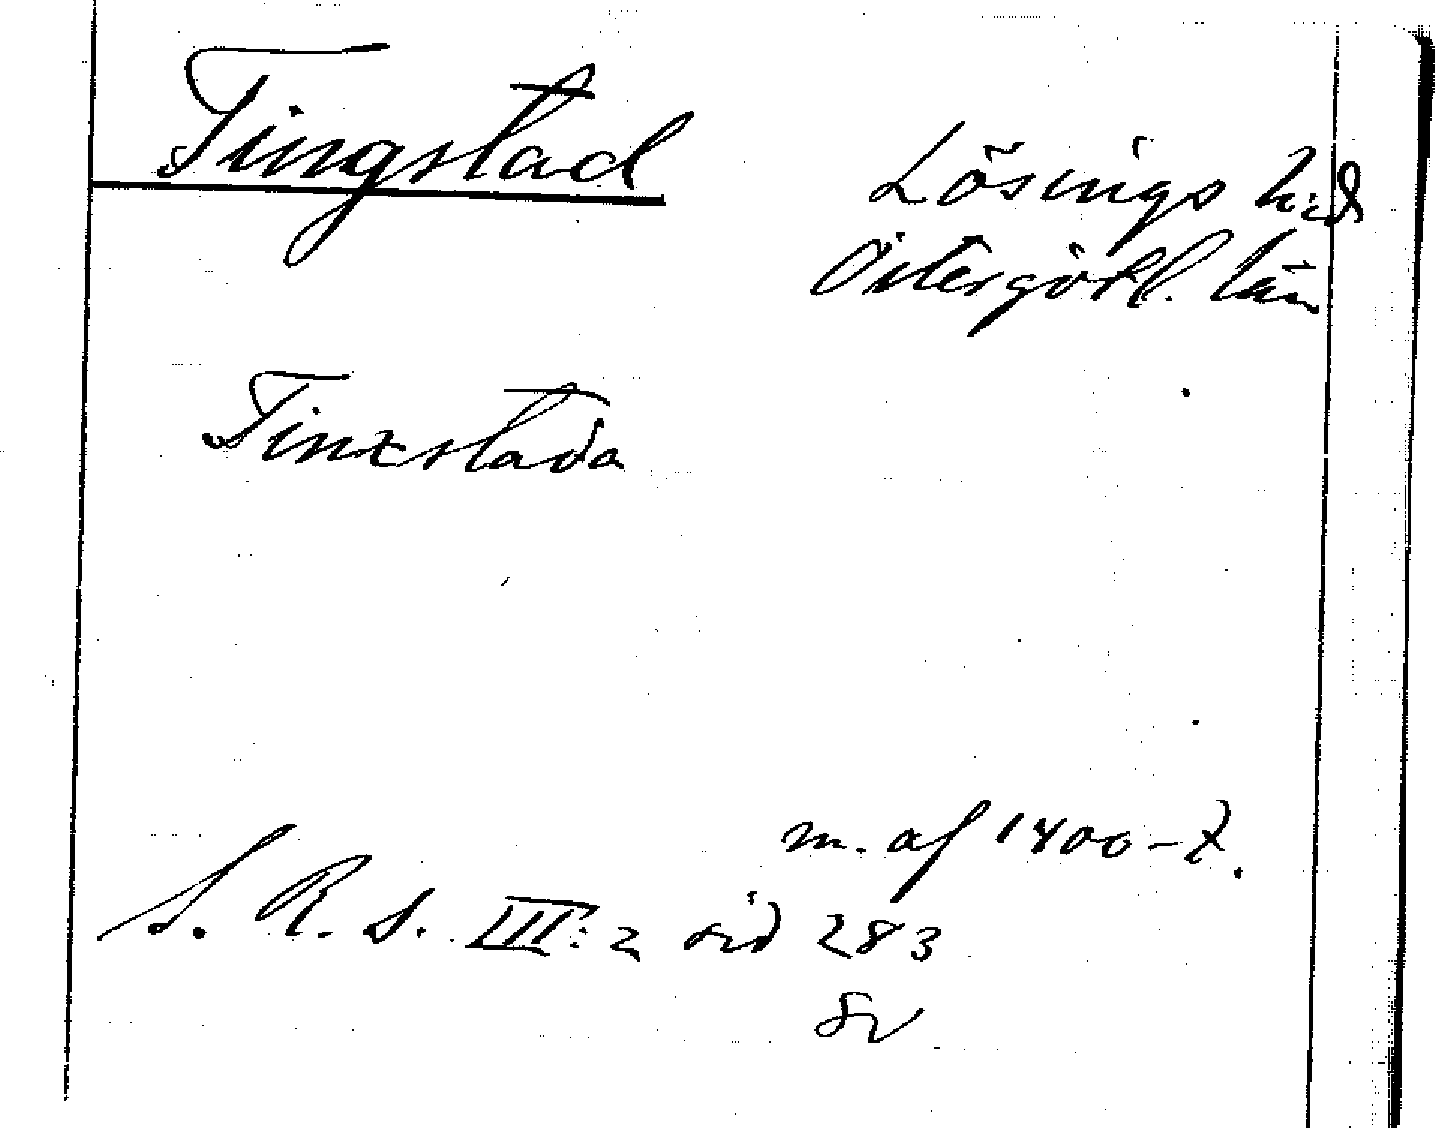 Tingstad
Lösings h:d
Östergötl. län
Tinxstada
m. af 1400-t.
S. R. S. III: 2 sid 283
Sv